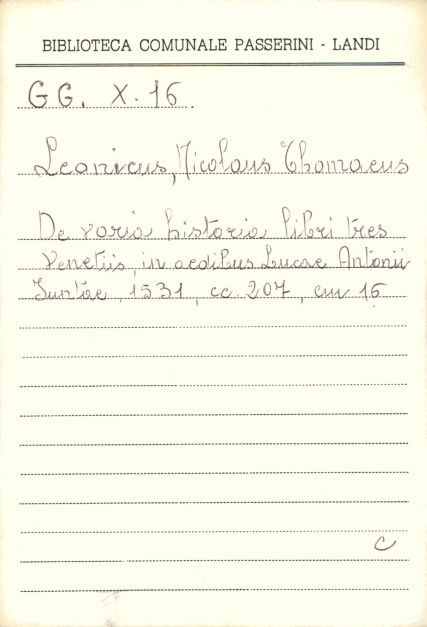 BIBLIOTECA COMUNALE PASSERINI - LANDI
GG. X. 16.
Leonicus, Nicolaus Thomaeus
De varia historia libri tres
Venetiis, in aedibus Lucae Antonii
Juntae, 1531, cc. 207, cm 16
C